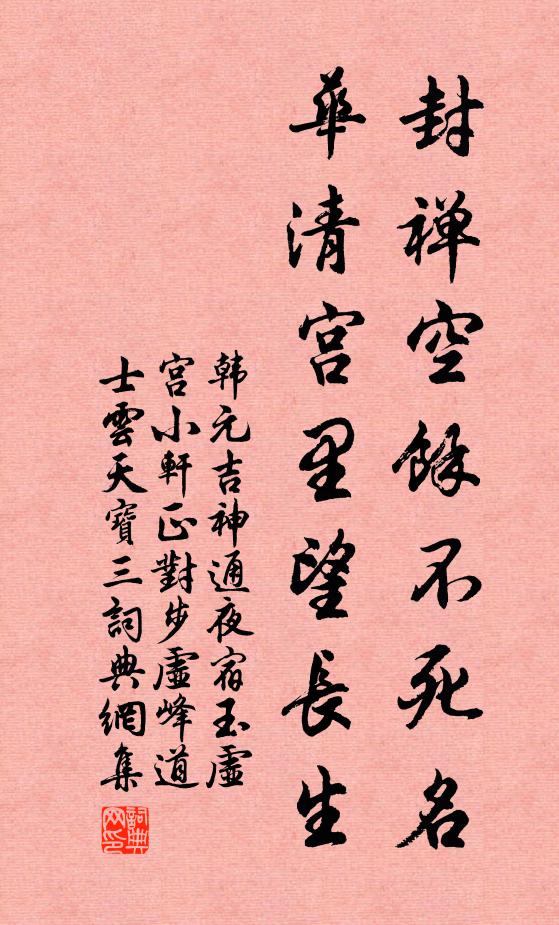 封禅空餘不死名
華清宫里望長生
韩元吉神通夜宿玉虚
宫小軒正對步虚峰道
士雲天寶三詞典網集
詞典
网印